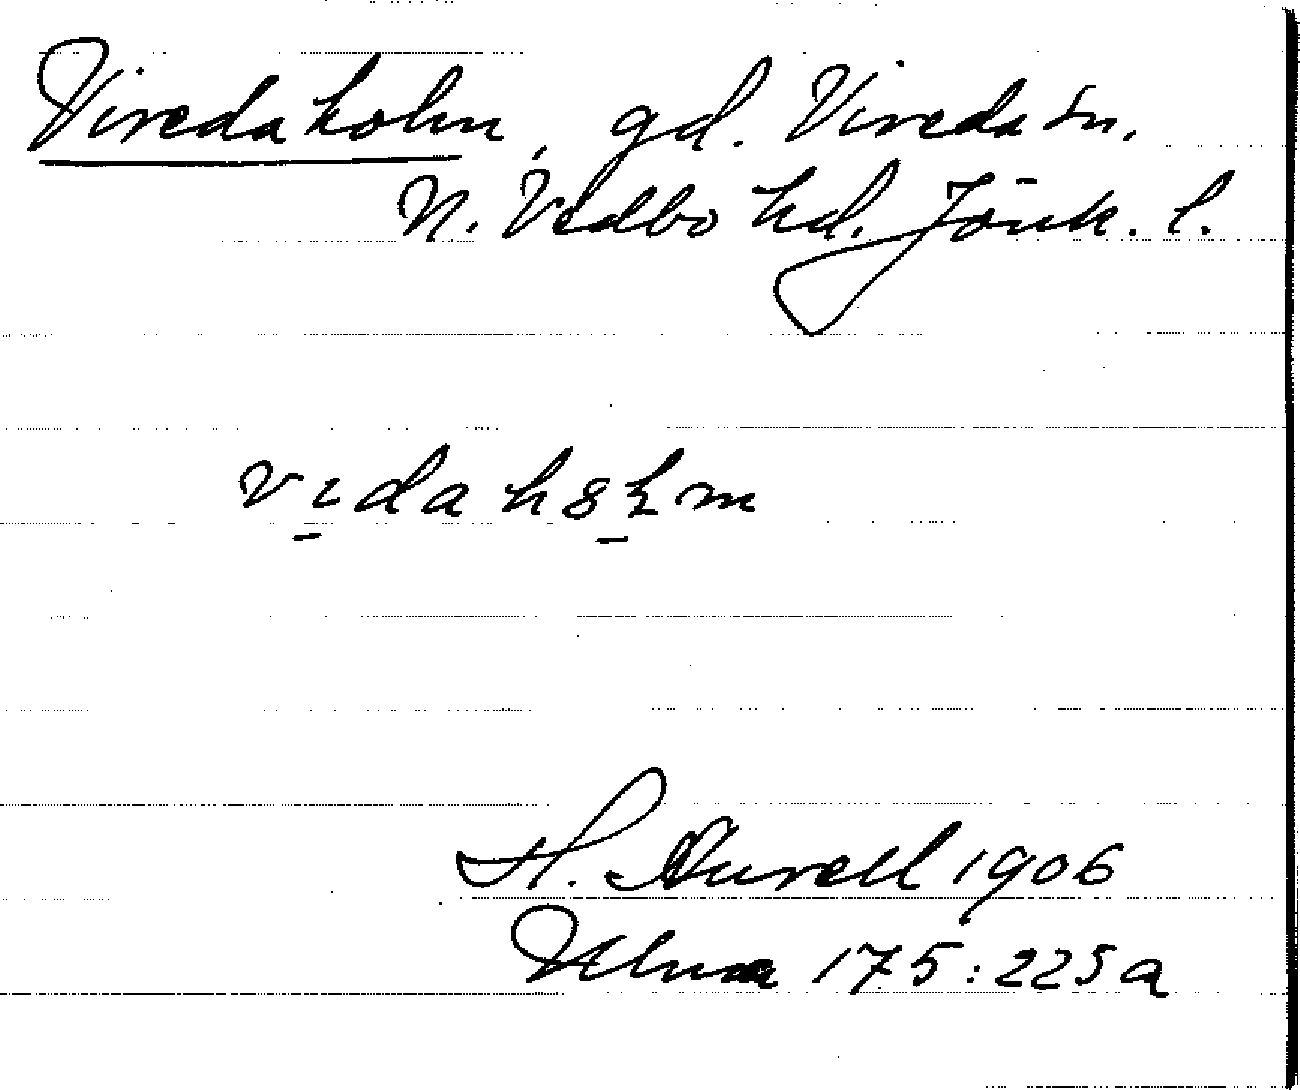 Viredaholm, gd. Vireda sn.
N. Vedbo hd. Jönk. l.
H. Aurell 1906
Ulma 175:225a